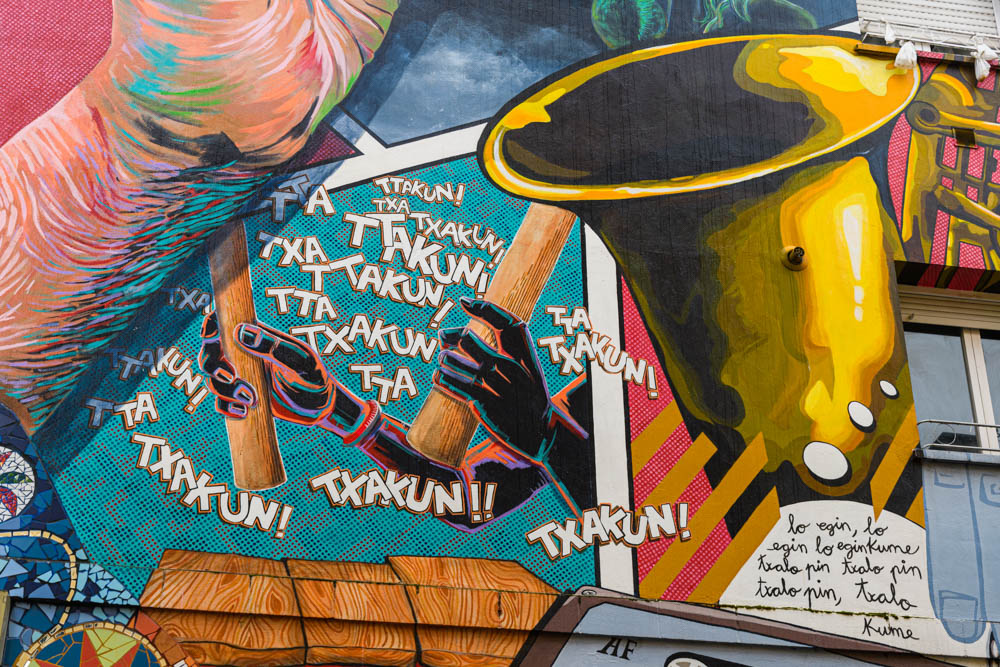 TTA
TTAKUN!
TXA
TXAKUN!
TTAKUN!
TXA
TTAKUN!
TTA
TXAKUN!
TTA
TXAKUN!
TXA
TTAKUN!
TTA
TXAKUN!
TXAKUN!!
TXAKUN!
lo egin, lo
egin lo eginkume
txalo pin txalo pin
txalo pin, txalo
Kume
AF